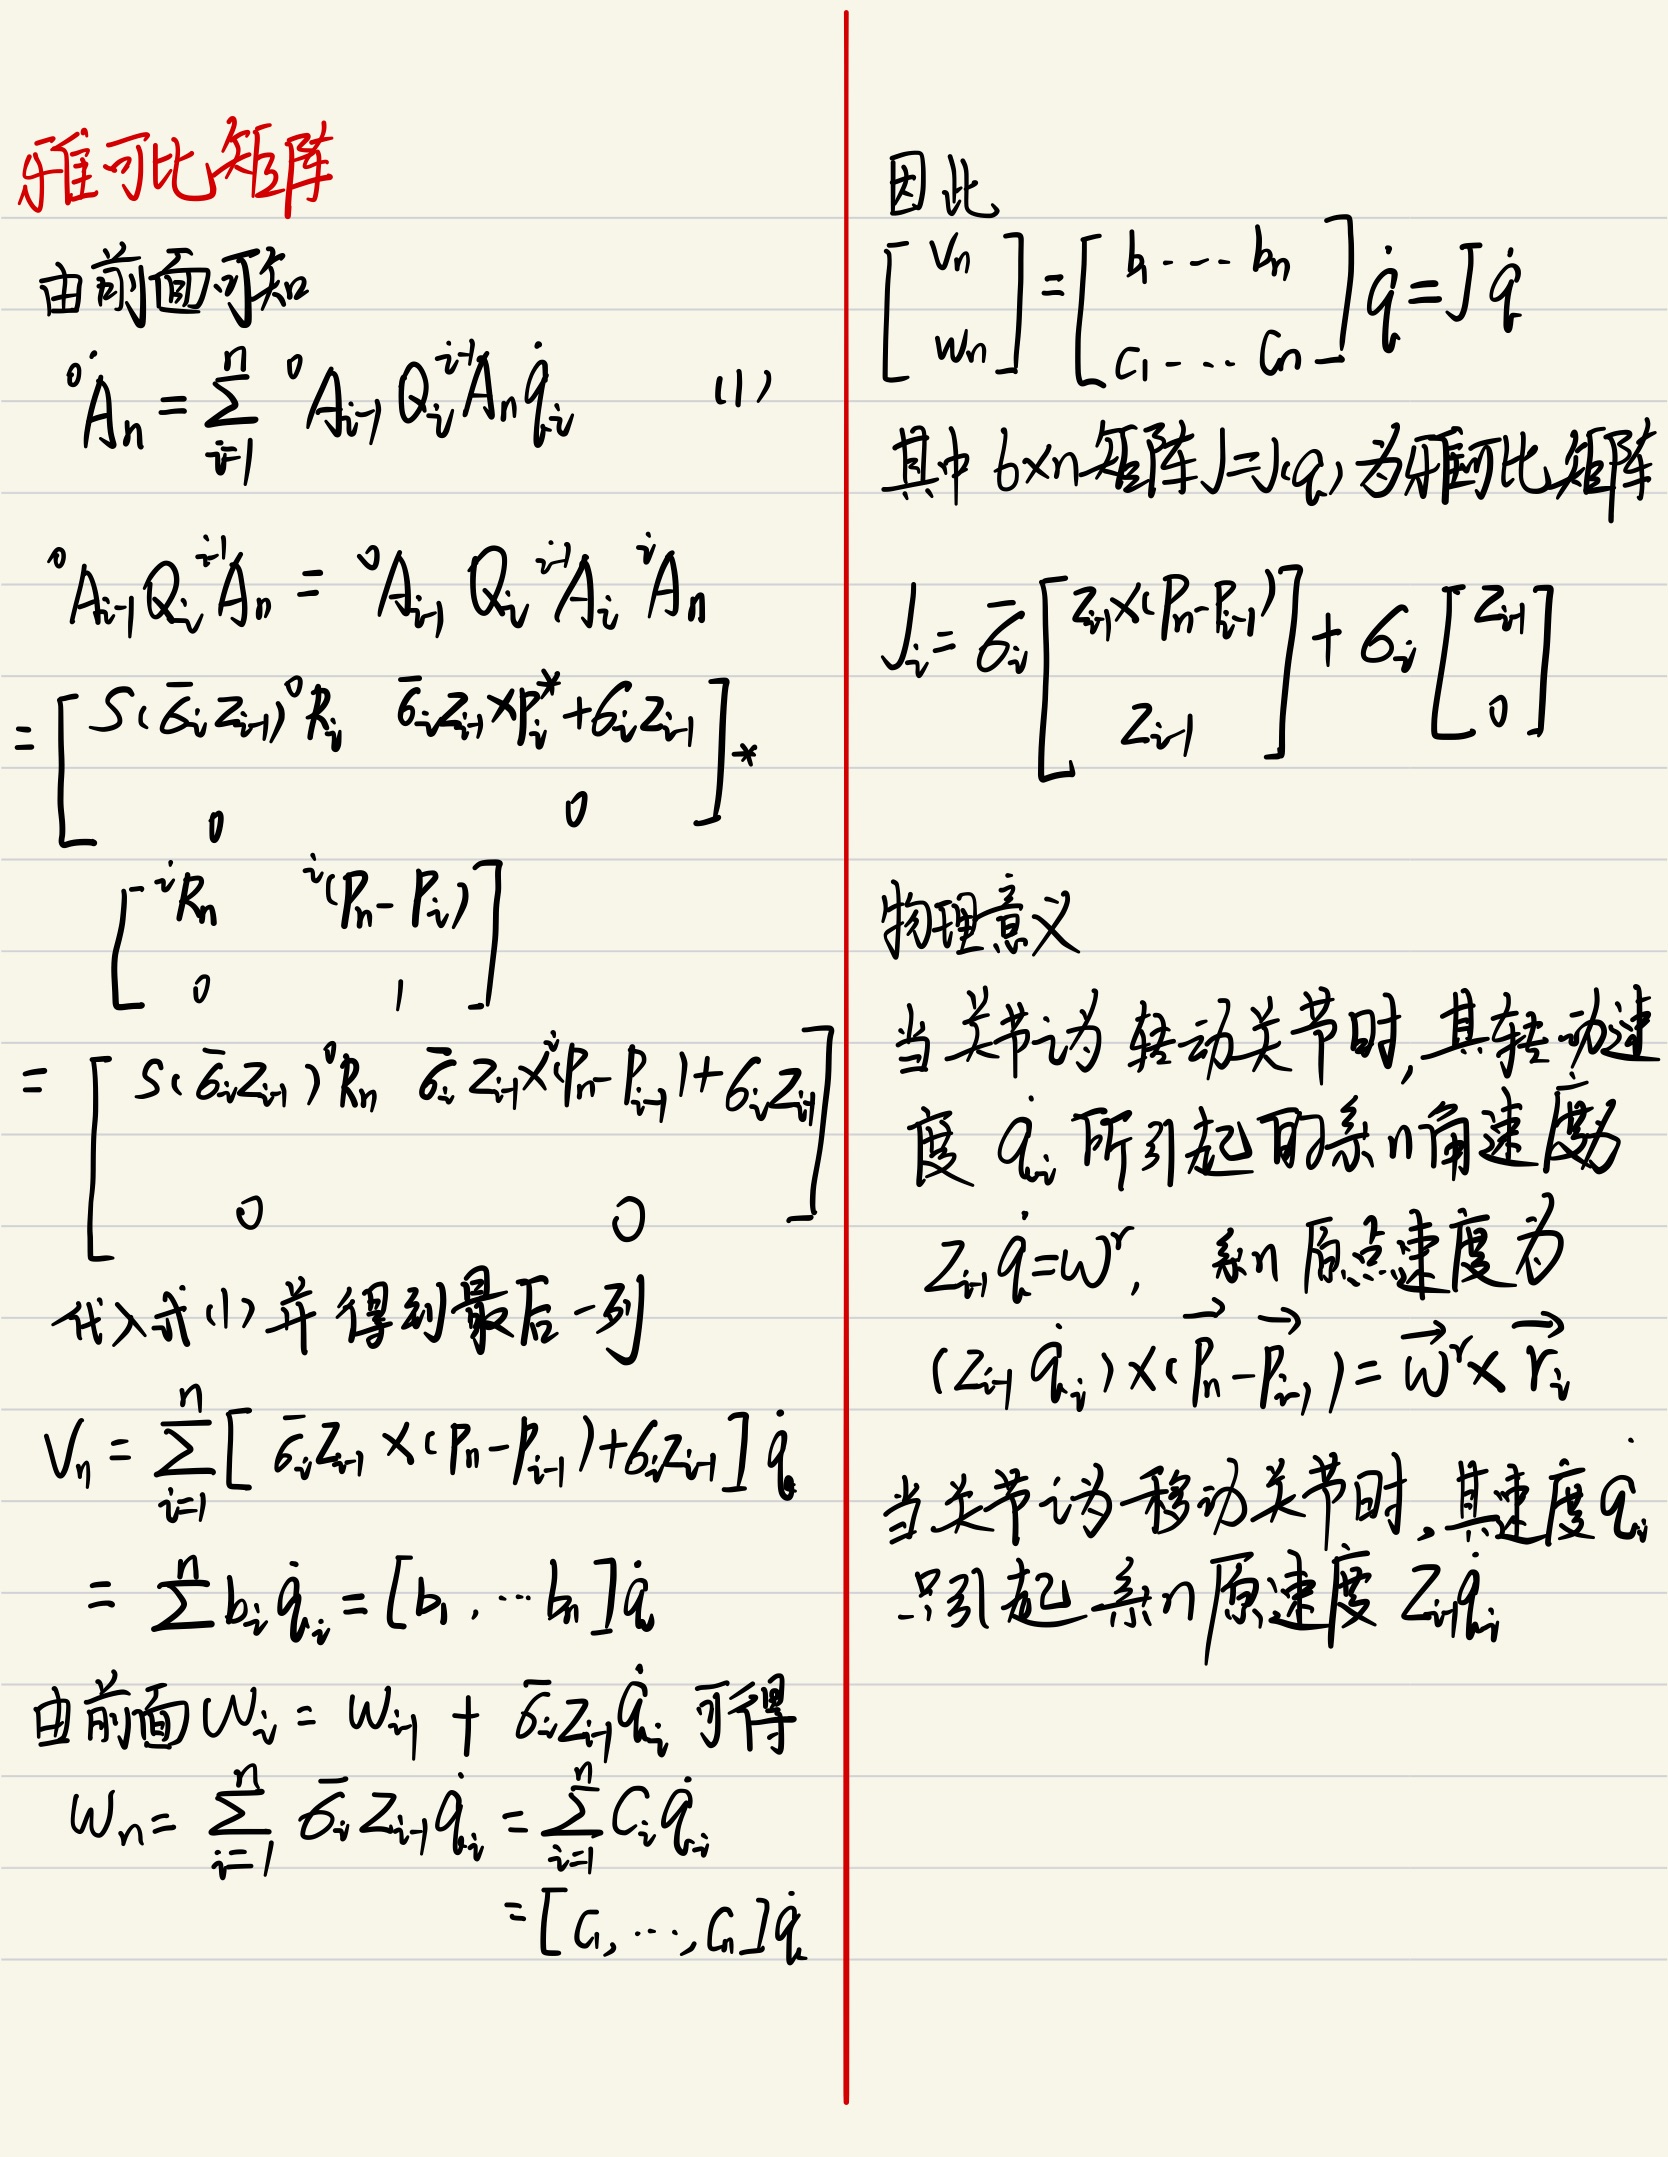 雅可比矩阵
由前面可知
⁰Ȧₙ = ∑ₙ^{i=1} ⁰Aᵢ₋₁ Qᵢ ⁱ⁻¹Aₙ q̇ᵢ (1)
⁰Aᵢ₋₁ Qᵢ ⁱ⁻¹Aₙ = ⁰Aᵢ₋₁ Qᵢ ⁱ⁻¹Aᵢ ⁱAₙ
= [ S(σ̄ᵢ zᵢ₋₁) ⁰Rᵢ σ̄ᵢ zᵢ₋₁ × pᵢ* + σᵢ zᵢ₋₁ ] *
0 0
[ ⁱRₙ ⁱ(Pₙ - Pᵢ) ]
0 1
= [ S(σ̄ᵢ zᵢ₋₁) ⁰Rₙ σ̄ᵢ zᵢ₋₁ × ⁱ(Pₙ - Pᵢ₋₁) + σᵢ zᵢ₋₁ ]
0 0
代入式(1)并得到最后一列
Vₙ = ∑ᵢ₌₁ⁿ [ σ̄ᵢ zᵢ₋₁ × (Pₙ - Pᵢ₋₁) + σᵢ zᵢ₋₁ ] q̇
= ∑ⁿ bᵢ q̇ᵢ = [b₁, ··· bₙ] q̇
由前面 wᵢ = wᵢ₋₁ + σ̄ᵢ zᵢ₋₁ q̇ᵢ 可得
wₙ = ∑ᵢ₌₁ⁿ σ̄ᵢ zᵢ₋₁ q̇ᵢ = ∑ᵢ₌₁ⁿ Cᵢ q̇ᵢ
= [C₁, ···, Cₙ] q̇
因此
[ Vₙ ] = [ b₁ ··· bₙ ] q̇ = J q̇
wₙ C₁ ··· Cₙ
其中 6×n 矩阵 J=J(q) 为雅可比矩阵
Jᵢ = σ̄ᵢ [ zᵢ₋₁ × (Pₙ - Pᵢ₋₁) ] + σᵢ [ zᵢ₋₁ ]
zᵢ₋₁ 0
物理意义
当关节i为转动关节时,其转动速
度 q̇ᵢ 所引起的系n角速度为
zᵢ₋₁ q̇ = wʳ, 系n原点速度为
(zᵢ₋₁ q̇ᵢ) × (P⃗ₙ - P⃗ᵢ₋₁) = w⃗ʳ × r⃗ᵢ
当关节i为移动关节时,其速度 q̇ᵢ
只引起系n原速度 zᵢ₋₁ q̇ᵢ